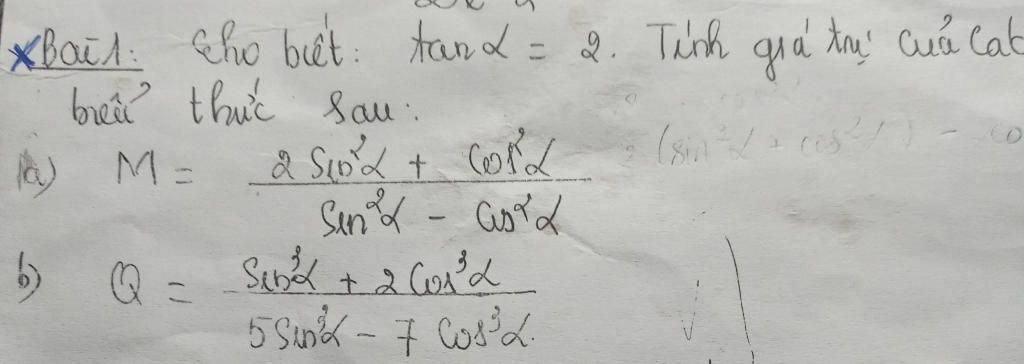 *Bài 1: Cho biết: tanα = 2. Tính giá trị của các
biểu thức sau:
a) M = (2 Sin²α + Cos²α) / (Sin²α - Cos²α)
(sin²α + cos²α) -
b) Q = (Sin³α + 2 Cos³α) / (5 Sin³α - 7 Cos³α.)